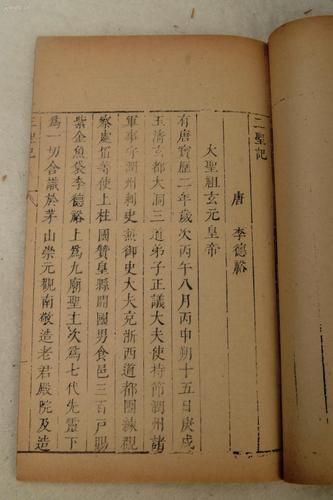 三聖記
唐 李德裕
大聖祖玄元皇帝
有唐寶曆二年歲次丙午八月丙申朔十五日庚戌
玉清玄都大洞三道弟子正議大夫使持節潤州諸
軍事守潤州刺史兼御史大夫充浙西道都團練觀
察處置等使上柱國贊皇縣開國男食邑三百戶賜
紫金魚袋李德裕上爲九廟聖主次爲七代先靈下
爲一切含識於茅山崇元觀南敬造老君殿院及造
三聖記